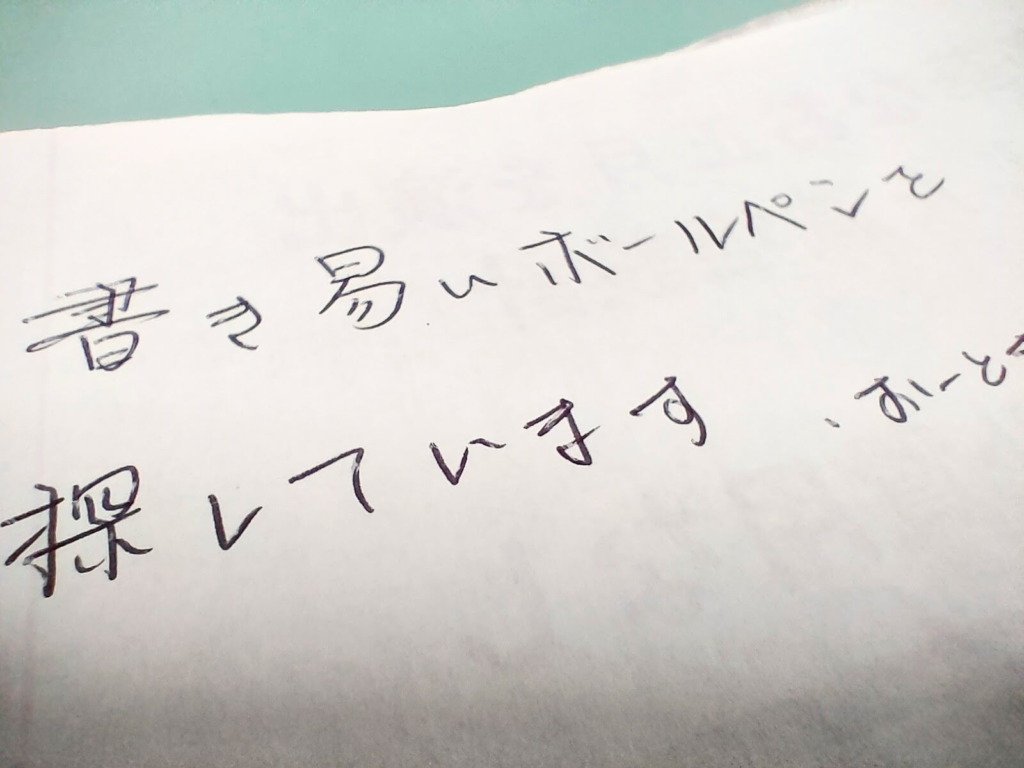 書き易いボールペンを
探しています